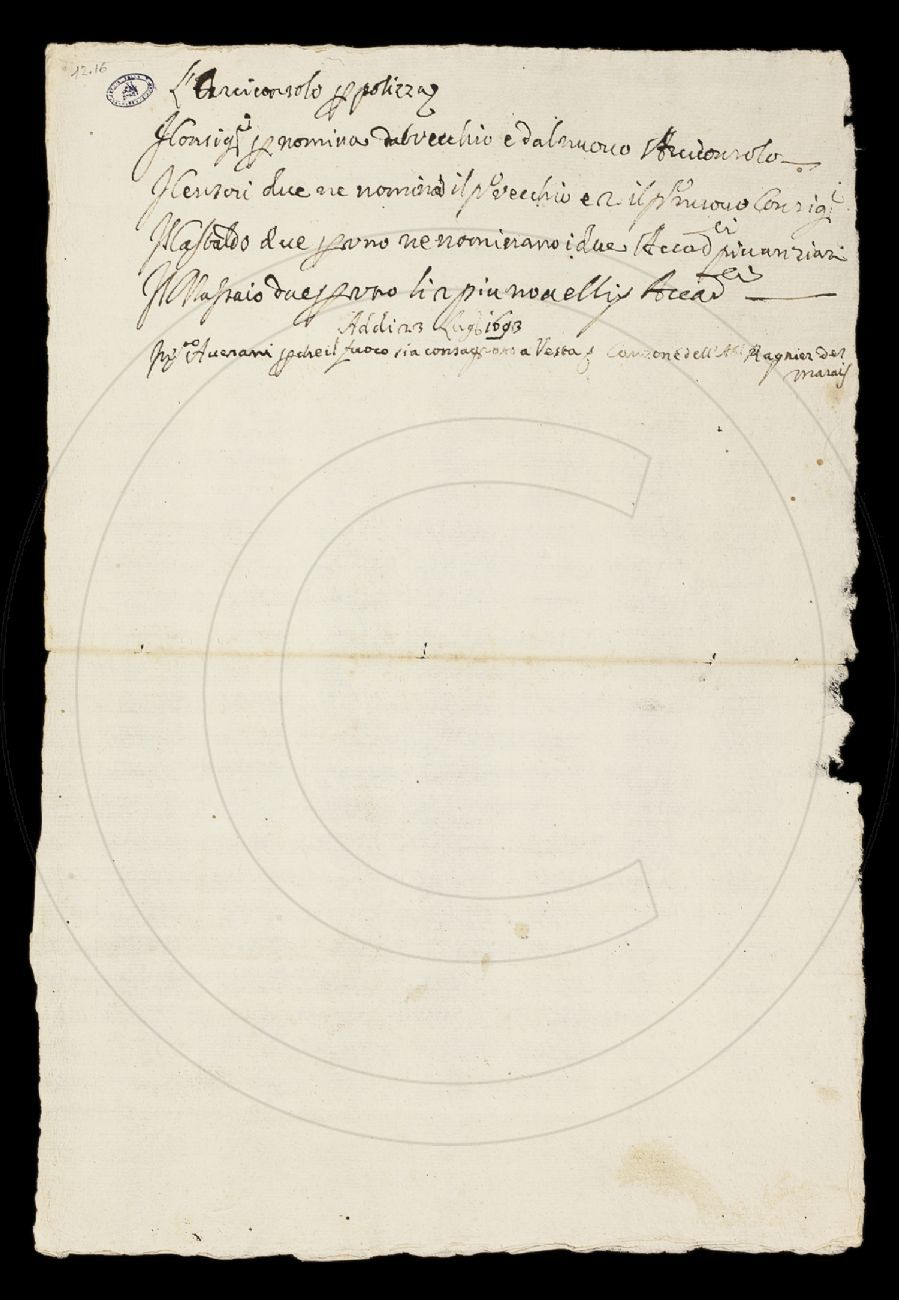 12.16
L'Arciconsolo p polizza
I Consigri p nomina dal vecchio e dal nuovo Arciconsolo
I Censori due ne nomina il po vecchio e 2 il po nuovo Consigre
Il Castaldo due p uno ne nominano i due Accadci piu anziani
Il Massaio due p uno li 2 piu novelli Accadci
Addi 23 Lugo 1693
Averani p che il fuoco sia consagrato a Vesta Canzone dell' Regnier Des
Marais